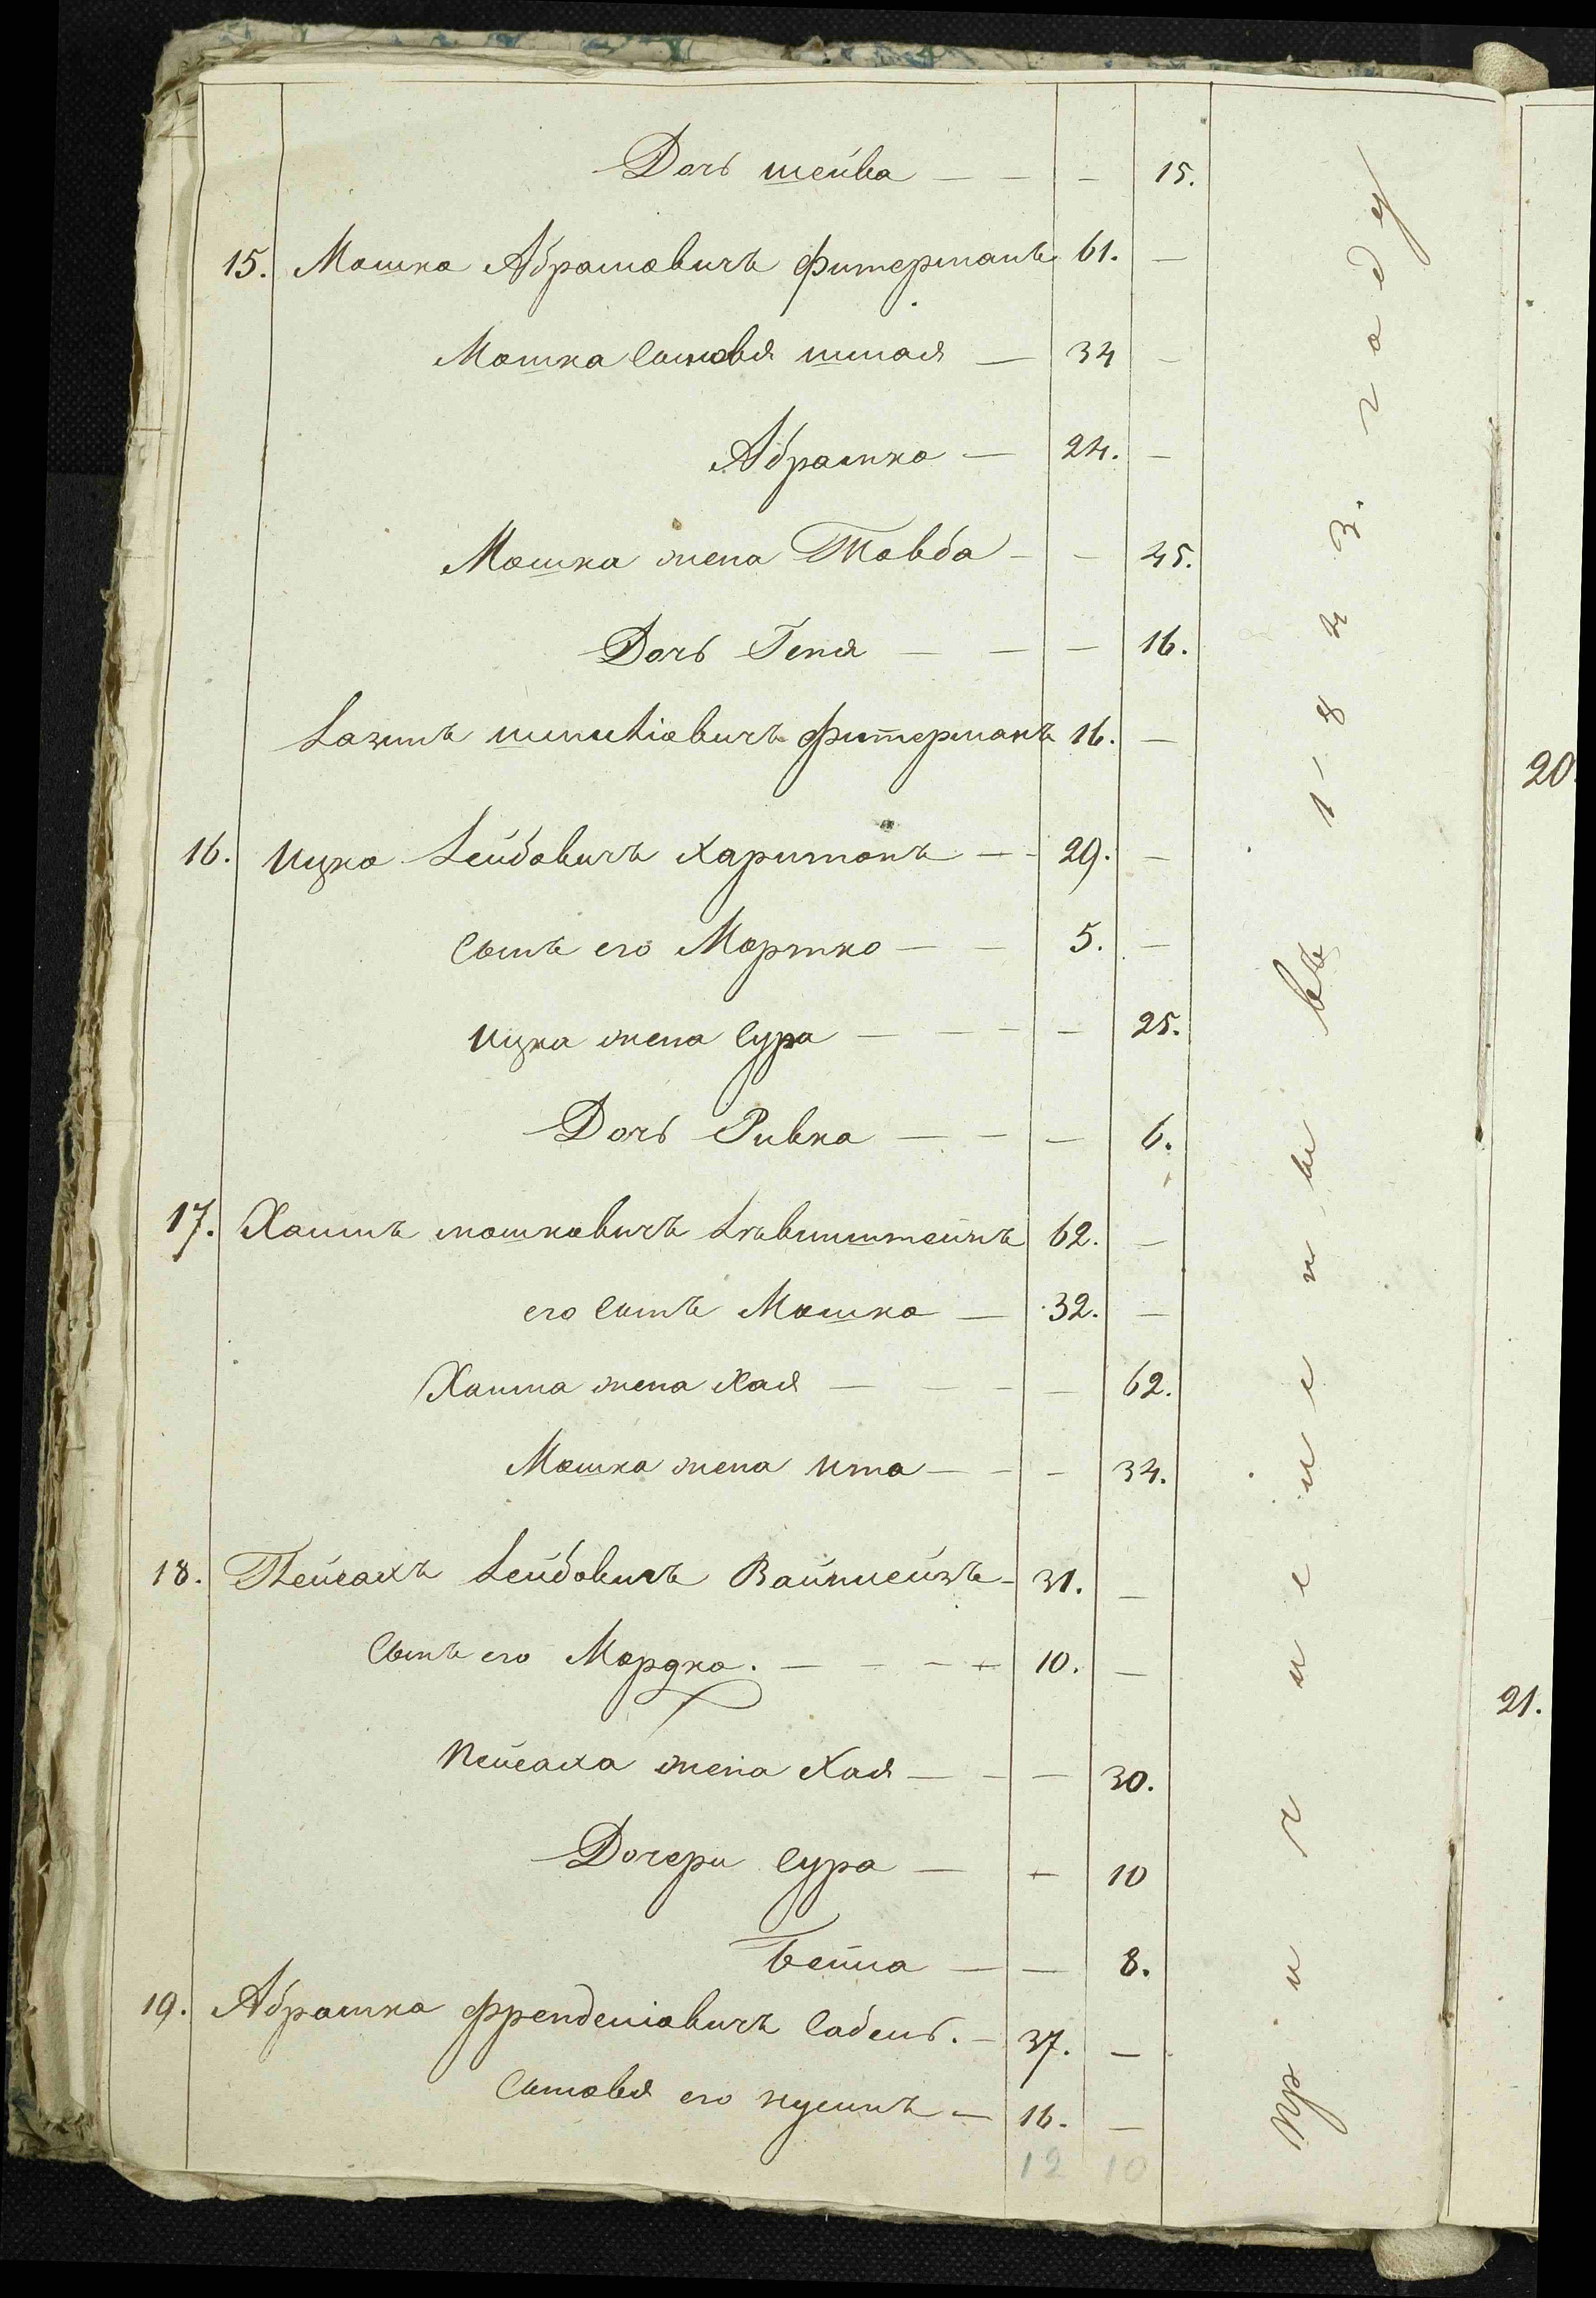 Дочь шейва — — — 15.
15. Мошко Абрамовичъ фитерманъ 61. —
Мошка сыновья шмая — 34 —
Абрамко — 24. —
Мошка жена Товба — — 45.
Дочь Геня — — — 16.
Лазинъ фитерманъ 16. —
16. Ицко Лейбовичъ Харитонъ — — 29. —
сынъ его Мортко — — 5. —
Ицка жена сура — — — — 25.
Дочь Ривка — — — 6.
17. Хаимъ мошковичъ Лѣвинштейнъ 62. —
его сынъ Мошко — 32. —
Хаима жена хая — — — — 62.
Мошка жена ита — — — 34.
18. Пейсахъ Лейбовичъ 31. —
Сынъ его Мордко. — — — — 10. —
Пейсаха жена хая — — — 30.
Дочери сура — — 10
Бейла — — 8.
19. Абрамко сабель. — 37. —
Сыновья его нусинъ — 16. —
12 10
Причисленны въ 1843. году
20.
21.